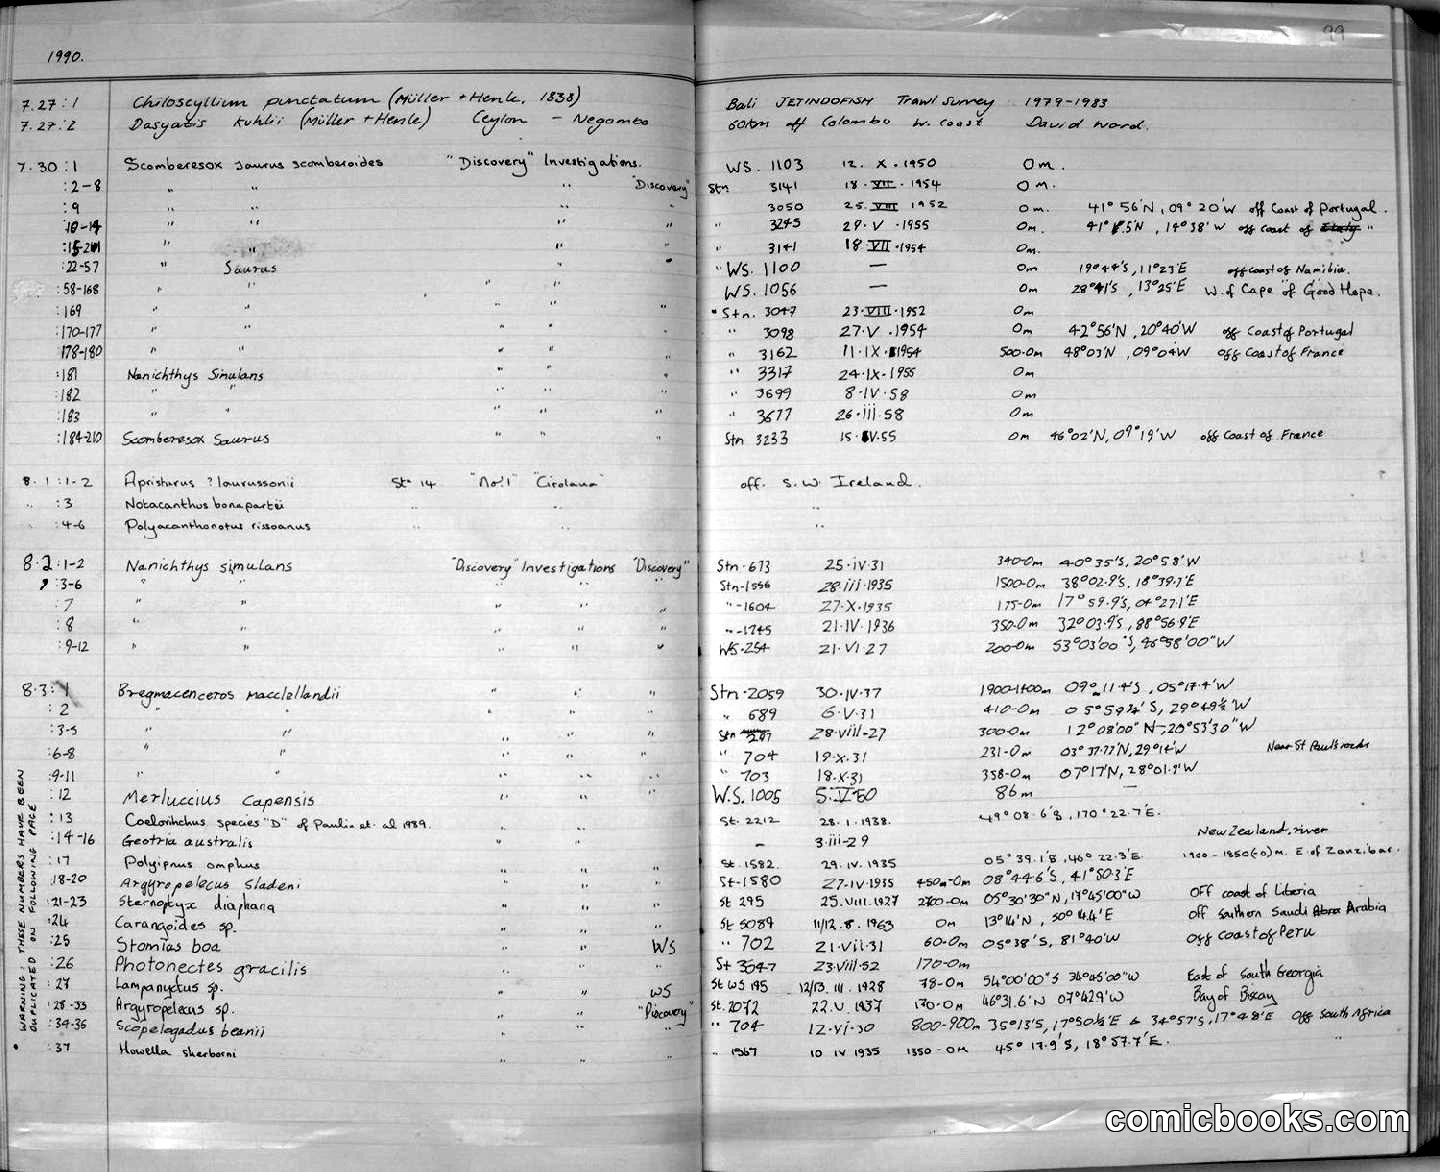 99
1990.
7.27:1 Chiloscyllium punctatum (Müller + Henle, 1838) Bali JETINDOFISH Trawl Survey 1979-1983
7.27:2 Dasyatis kuhlii (Müller + Henle) Ceylon - Negombo 60km off Colombo W. coast David Ward.
7.30:1 Scomberesox saurus scomberoides "Discovery" Investigations. WS. 1103 12. X. 1950 0m.
:2-8 " " " "Discovery" Stn 3141 18. VII. 1954 0m.
:9 " " " " 3050 25. VIII 1952 0m. 41° 56'N, 09° 20'W off Coast of Portugal.
:10-14 " " " " " 3245 29. V. 1955 0m. 14° 38'W off coast of Italy "
" " " " " 3141 18. VII. 1954 0m.
:22-57 " Saurus " " " " WS. 1100 — 0m 19°44'S, 11°23'E off coast of Namibia.
:58-168 " " " " WS. 1056 — 0m 28°41'S, 13°25'E W. of Cape of Good Hope.
:169 " " " " " Stn. 3047 23. VIII. 1952 0m
:170-177 " " " " " " 3098 27. V. 1954 0m 42°56'N, 20°40'W off Coast of Portugal
:178-180 " " " " " " 3162 11. IX. 1954 500-0m 48°03'N, 09°04W off Coast of France
:181 Nanichthys Simulans " " " " 3317 24. IX. 1955 0m
:182 " " " " " " 3699 8. IV. 58 0m
:183 " " " " " " 3677 26. iii. 58 0m
:184-210 Scomberesox Saurus " " " Stn 3233 15. IV. 55 0m 46°02'N, 09°19'W off Coast of France
8.1:1-2 Apristurus ? laurussonii Stn 14 "No. 1" "Cirolana" off. S. W. Ireland.
" :3 Notacanthus bonapartii " " "
" :4-6 Polyacanthonotus rissoanus " " "
8.2:1-2 Nanichthys simulans "Discovery" Investigations "Discovery" Stn. 673 25. iv. 31 340-0m 40°35'S, 20°58'W
:3-6 " " " " " Stn. 1556 28. iii. 1935 1500-0m 38°02.9'S. 18°39.7'E
:7 " " " " " "-1604 27. X. 1935 175-0m 17°59.9'S, 04°27.1'E
:8 " " " " " "-1745 21. IV. 1936 350-0m 32°03.9'S, 88°56.9'E
:9-12 " " " " " WS. 254 21. VI. 27 200-0m 53°03'00"S, 46°58'00"W
8.3:1 Bregmacenceros macclellandii " " " Stn. 2059 30. IV. 37 1900-1400m 09° 11.4'S, 05°17.4'W
:2 " " " " " " 689 6. V. 31 410-0m 05°59¾'S, 29°49½'W
:3-5 " " " " " Stn 297 28. viii-27 300-0m 12°08'00"N-20°53'30"W
:6-8 " " " " " " 704 19. x. 31 231-0m 03°37.77'N, 29°14'W Near St Paul's rocks
:9-11 " " " " " " 703 18. x. 31 358-0m 07°17'N, 28°01.9'W
:12 Merluccius Capensis " " " W.S. 1005 5. V. 50 86m —
:13 Coelorinchus species "D" of Paulin et. al 1989. " " St. 2212 28. 1. 1938. 49°08.6'S, 170°22.7'E.
:14-16 Geotria australis " " - 3. iii-29 New Zealand, river
:17 Polyipnus omphus " " " St. 1582 29. iv. 1935 05°39.1'S, 46°22.3'E 1900-1850(-0)m. E. of Zanzibar.
:18-20 Argyropelecus sladeni " " " St-1580 27-IV-1935 450m-0m 08°44.6'S, 41°50.3'E
:21-23 Sternoptyx diaphana " " " St 295 25. VIII. 1927 2700-0m 05°30'30"N, 17°45'00"W Off coast of Liberia
:24 Carangoides sp. " " St 5089 11/12. 8. 1963 0m 13°14'N, 50°44'E off Southern Saudi Abra Arabia
:25 Stomias boa " " WS " 702 21. VII. 31 60-0m 05°38'S, 81°40'W off coast of Peru
:26 Photonectes gracilis " " " St 3047 23. VIII. 52 170-0m
:27 Lampanyctus sp. " " WS St WS 195 12/13. III. 1928 78-0m 54°00'00"S 34°45'00"W East of South Georgia
:28-33 Argyropelecus sp. " " "Discovery" St. 2072 22. V. 1937 130-0m 46°31.6'N 07°42.9'W Bay of Biscay
:34-36 Scopelogadus beanii " " " " 704 12. vi. 30 800-900m 35°13'S, 17°50½'E to 34°57'S, 17°48'E off South Africa
:37 Howella sherborni " " " 1567 10 IV 1935 1350-0m 45° 17.9'S, 18°57.7'E.
WARNING: THESE NUMBERS HAVE BEEN
DUPLICATED ON FOLLOWING PAGE
comicbooks.com